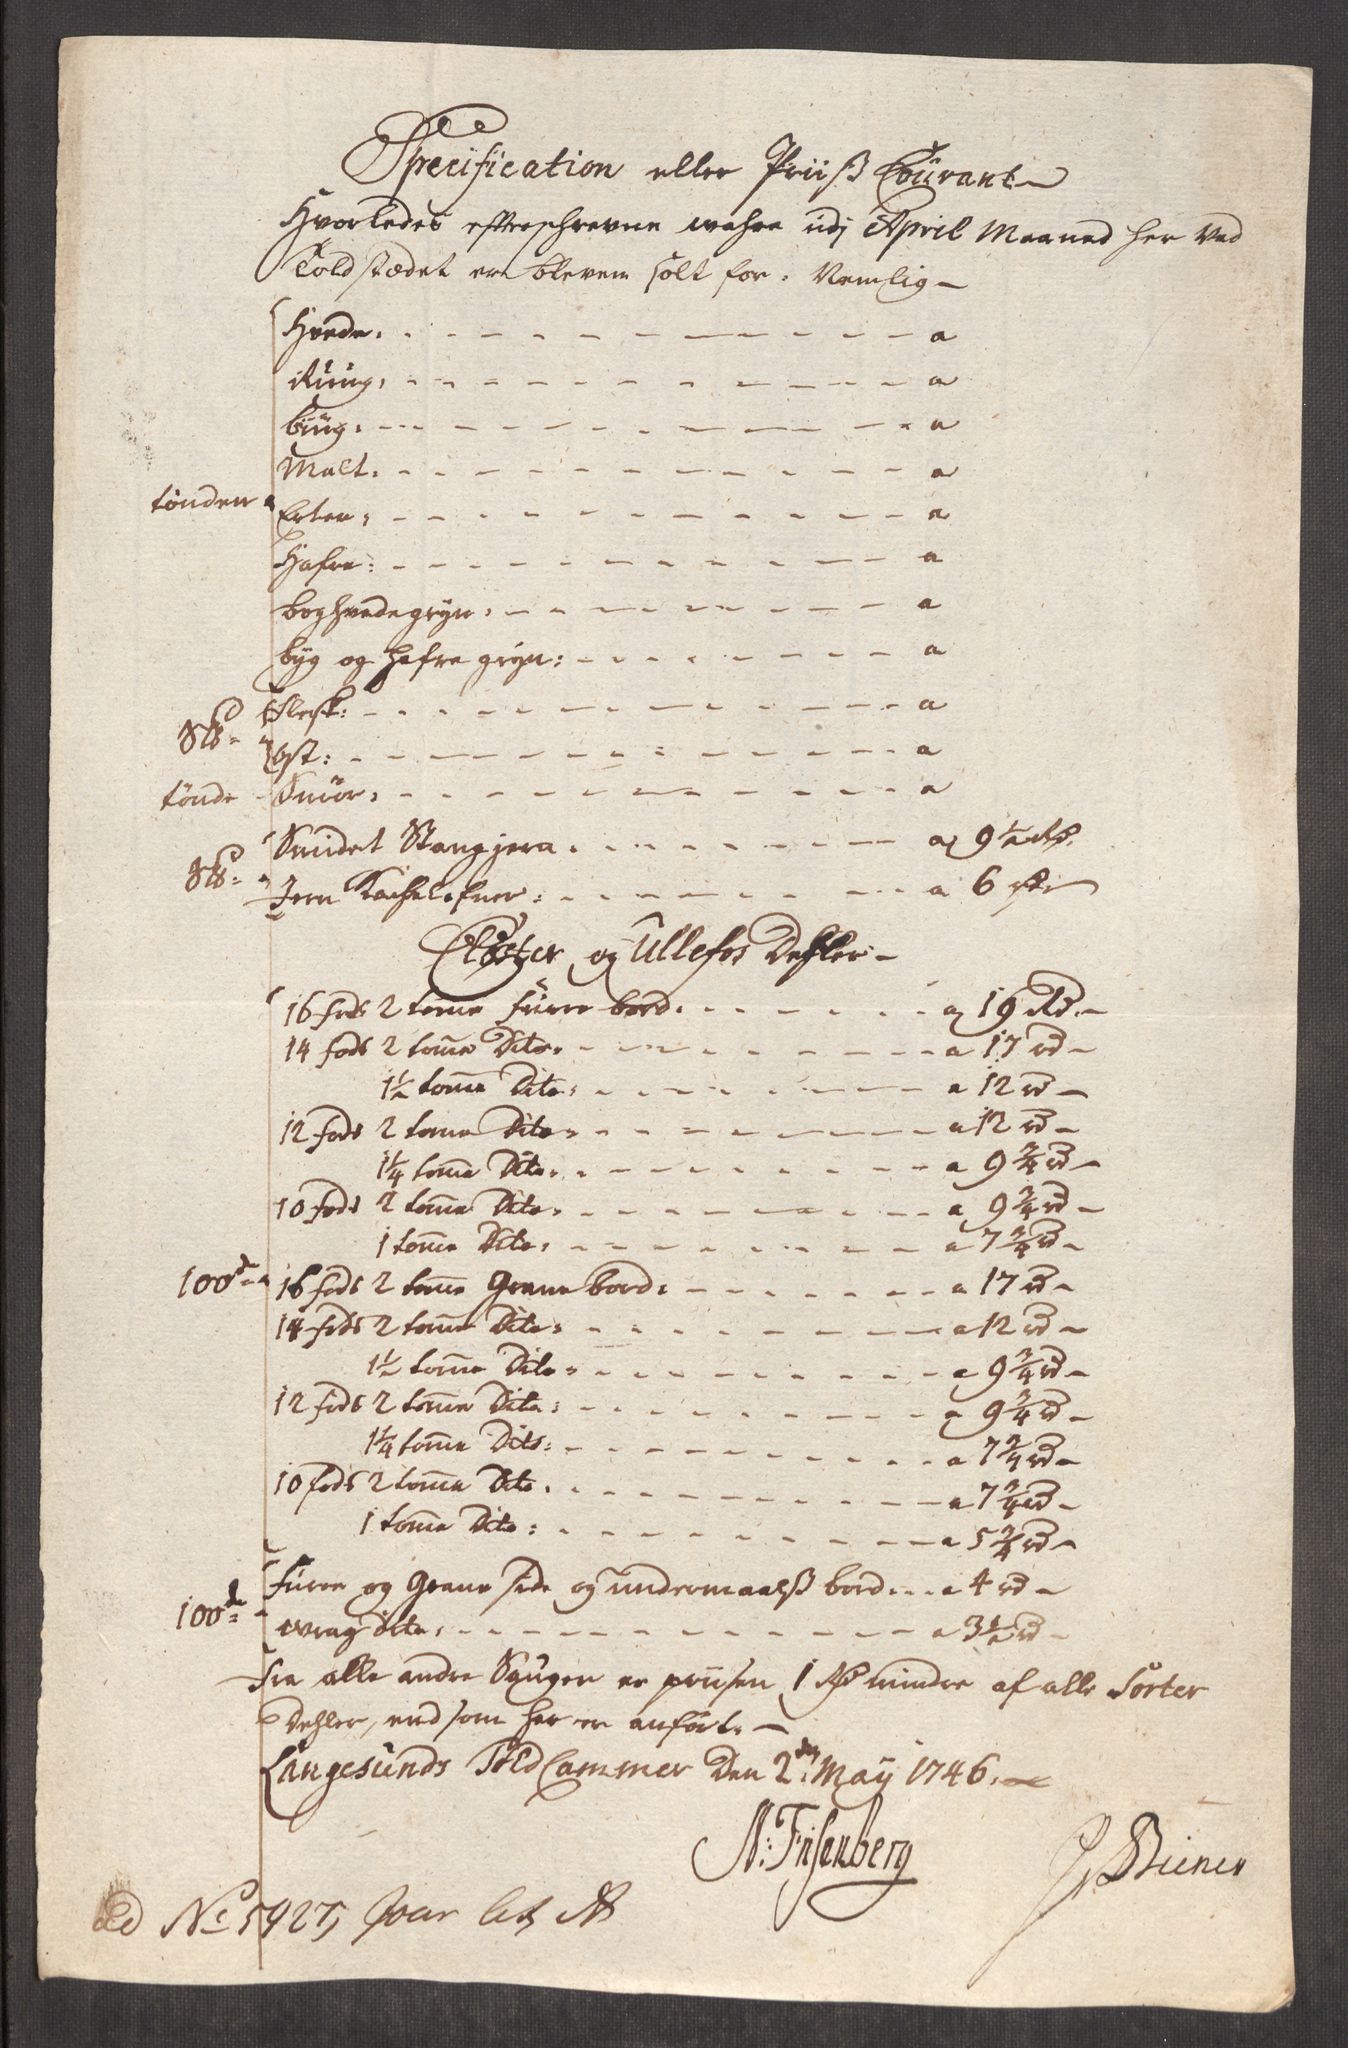 Specification eller Priiß Courant
Hvorledes efterschrevne wahre udj April Maaned her ved
Toldstædet er bleven solt for. Nemlig
Hvede. a
Rüug. a
büg. a
Malt. a
tönden
Erter. a
Hafre. a
boghvedegryn. a
byg og hafre gryn: a
Flesk: a
Ost: a
tönde Smör. a
Smidet Stangjern. a 9½ Rd.
Jern Kachelofner: a 6
Closter og Ullefos Dehler
16 fods 2 tome fürre bord. a 19 Rd.
14 fods 2 tome Dito. a 17 rd
1½ tome Dito. a 12 rd
12 fods 2 tome Dito. a 12 rd
1¼ tome Dito. a 9¾ rd
10 fods 2 tome Dito. a 9¾ rd
1 tome Dito. a 7¾ rd
100de 16 fods 2 tome Grane bord: a 17 rd
14 fods 2 tome Dito: a 12 rd
1½ tome Dito. a 9¾ rd
12 fods 2 tome Dito: a 9¾ rd
1¼ tome Dito: a 7¾ rd
10 fods 2 tome Dito. a 7¾ rd
1 tome Dito: a 5¾ rd
fürre og Grane side og undermaalß bord. a 4 rd
100de
wrag dito. a 3½ rd
Fra alle andre Sauger er priisen 1 Rd mindre af alle Sorter
Dehler, end som her er anfört.
Langesunds Told Cammer Den 2den May 1746.
N: Friisenberg
Biener
No 5927